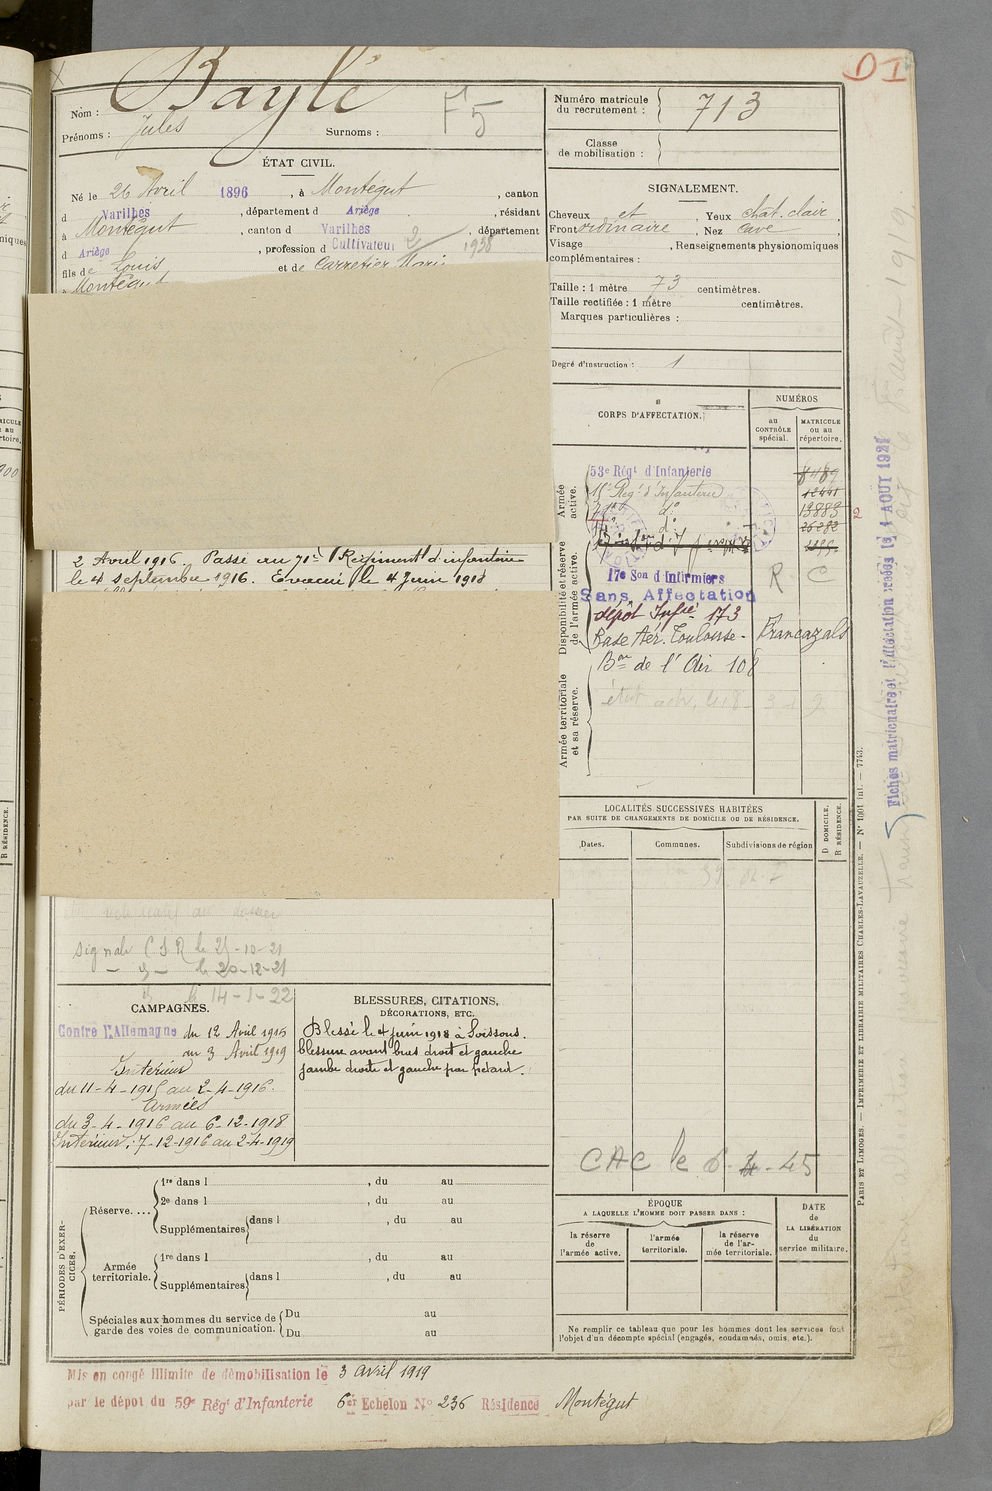 Nom : Baylé
Prénoms : Jules Surnoms :
F5
ÉTAT CIVIL.
Né le 26 Avril 1896, à Montégut, canton
d Varilhes, département d Ariège, résidant
à Montégut, canton d Varilhes, département
d Ariège, profession d Cultivateur 2 1938
fils de Louis et de Carretier Marie
Montégut
2 Avril 1916. Passé au 71e Régiment d'infanterie
le 4 septembre 1916. Évacué le 4 Juin 1918
dossier
Signale C S R le 25-10-21
le 20-12-21
le 14-1-22
CAMPAGNES.
Contre l'Allemagne du 12 Avril 1915
au 3 Avril 1919
Intérieur
du 11-4-1915 au 2-4-1916.
Armées
du 3-4-1916 au 6-12-1918
Intérieur : 7-12-1916 au 2-4-1919
BLESSURES, CITATIONS,
DÉCORATIONS, ETC.
Blessé le 4 juin 1918 à Soissons.
blessure avant bras droit et gauche
jambe droite et gauche par pétard.
PÉRIODES D'EXERCICES.
Réserve....
1re dans l , du au
2e dans l , du au
Supplémentaires dans l , du au
Armée
territoriale.
1re dans l , du au
Supplémentaires dans l , du au
Spéciales aux hommes du service de
garde des voies de communication.
Du au
Du au
Mis en congé illimité de démobilisation le 3 avril 1919
par le dépôt du 59e Régt d'Infanterie 6e Echelon No 236 Résidence Montégut
DI
Numéro matricule
du recrutement : 713
Classe
de mobilisation :
SIGNALEMENT.
Cheveux et Yeux chat. clair,
Front ordinaire, Nez cave,
Visage , Renseignements physionomiques
complémentaires :
Taille : 1 mètre 73 centimètres.
Taille rectifiée : 1 mètre centimètres.
Marques particulières :
Degré d'instruction : 1
CORPS D'AFFECTATION.
NUMÉROS
au
CONTRÔLE
spécial.
MATRICULE
ou au
répertoire.
Armée
active.
53e Régt d'Infanterie
Régt d'Infanterie
do
do
13883
26282
2
Disponibilité et réserve
de l'armée active.
17e Son d'Infirmiers R C
Sans Affectation
dépôt Infie 173
Base Aér. Toulouse - Francazals
Bon de l'Air 108
Armée territoriale
et sa réserve.
LOCALITÉS SUCCESSIVES HABITÉES
PAR SUITE DE CHANGEMENTS DE DOMICILE OU DE RÉSIDENCE.
Dates.
Communes.
Subdivisions de région
D DOMICILE.
R RÉSIDENCE.
CAC le 6-4-45
ÉPOQUE
A LAQUELLE L'HOMME DOIT PASSER DANS :
la réserve
de
l'armée active.
l'armée
territoriale.
la réserve
de l'ar-
mée territoriale.
DATE
de
LA LIBÉRATION
du
service militaire.
Ne remplir ce tableau que pour les hommes dont les services font
l'objet d'un décompte spécial (engagés, condamnés, omis, etc.).
PARIS ET LIMOGES. — IMPRIMERIE ET LIBRAIRIE MILITAIRES CHARLES-LAVAUZELLE. — No 1001 int. — 7743.
Fiches matricule et d'affectation créées le 4 AOUT 1928